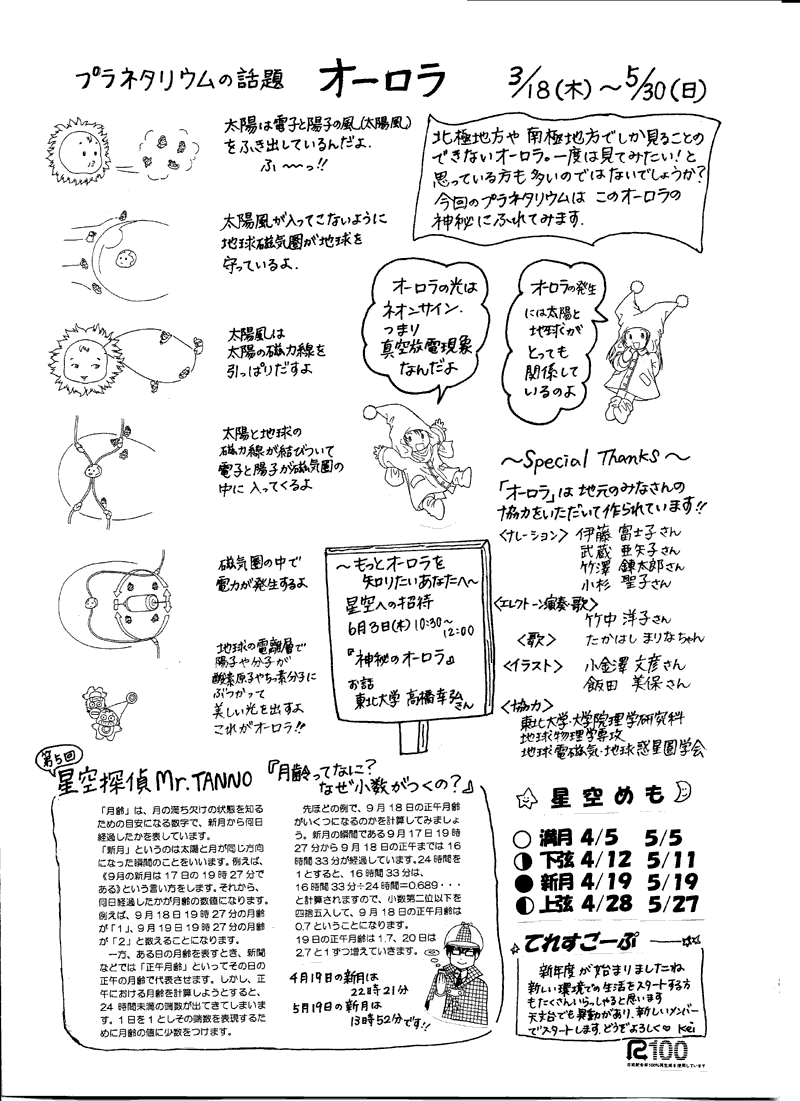 プラネタリウムの話題 オーロラ 3/18(木)～5/30(日)
太陽は電子と陽子の風(太陽風)
をふき出しているんだよ.
ふ～～っ!!
北極地方や南極地方でしか見ることの
できないオーロラ。一度は見てみたい!と
思っている方も多いのではないでしょうか?
今回のプラネタリウムは このオーロラの
神秘にふれてみます.
太陽風が入ってこないように
地球磁気圏が地球を
守っているよ.
オーロラの光は
ネオンサイン.
つまり
真空放電現象
なんだよ
オーロラの発生
には太陽と
地球が
とっても
関係して
いるのよ
太陽風は
太陽の磁力線を
引っぱりだすよ
太陽と地球の
磁力線が結びついて
電子と陽子が磁気圏の
中に入ってくるよ
磁気圏の中で
電力が発生するよ
地球の電離層で
陽子や分子が
酸素原子やちっ素分子に
ぶつかって
美しい光を出すよ
これがオーロラ!!
～もっとオーロラを
知りたいあなたへ～
星空への招待
6月3日(木)10:30～
12:00
『神秘のオーロラ』
お話
東北大学 高橋幸弘
さん
～Special Thanks～
「オーロラ」は地元のみなさんの
協力をいただいて作られています!!
<ナレーション> 伊藤 富士子さん
武蔵 亜矢子さん
竹澤 錬太郎さん
小杉 聖子さん
<エレクトーン演奏・歌>
竹中 洋子さん
<歌> たかはし まりなちゃん
<イラスト> 小金澤 文彦さん
飯田 美保さん
<協力>
東北大学・大学院理学研究科
地球物理学専攻
地球電磁気・地球惑星圏学会
第5回
星空探偵Mr.TANNO 『月齢ってなに?
なぜ小数がつくの?』
「月齢」は、月の満ち欠けの状態を知る
ための目安になる数字で、新月から何日
経過したかを表しています。
「新月」というのは太陽と月が同じ方向
になった瞬間のことをいいます。例えば、
《9月の新月は17日の19時27分で
ある》という言い方をします。それから、
何日経過したかが月齢の数値になります。
例えば、9月18日19時27分の月齢
が「1」、9月19日19時27分の月齢
が「2」と数えることになります。
一方、ある日の月齢を表すとき、新聞
などでは「正午月齢」といってその日の
正午の月齢で代表させます。しかし、正
午における月齢を計算しようとすると、
24時間未満の端数が出てきてしまいま
す。1日を1としその端数を表現するた
めに月齢の値に少数をつけます。
先ほどの例で、9月18日の正午月齢
がいくつになるのかを計算してみましょ
う。新月の瞬間である9月17日19時
27分から9月18日の正午までは16
時間33分が経過しています。24時間を
1とすると、16時間33分は、
16時間33分÷24時間=0.689・・・
と計算されますので、小数第二位以下を
四捨五入して、9月18日の正午月齢は
0.7ということになります。
19日の正午月齢は1.7、20日は
2.7と1ずつ増えていきます。
4月19日の新月は
22時21分
5月19日の新月は
13時52分です!!
星空めも
満月 4/5 5/5
下弦 4/12 5/11
新月 4/19 5/19
上弦 4/28 5/27
てれすこーぷ
新年度が始まりましたね
新しい環境での生活をスタートする方
もたくさんいらっしゃると思います
天文台でも異動があり、新しいメンバー
でスタートします.どうぞよろしく♡ Kei
R100
古紙配合率100%再生紙を使用しています